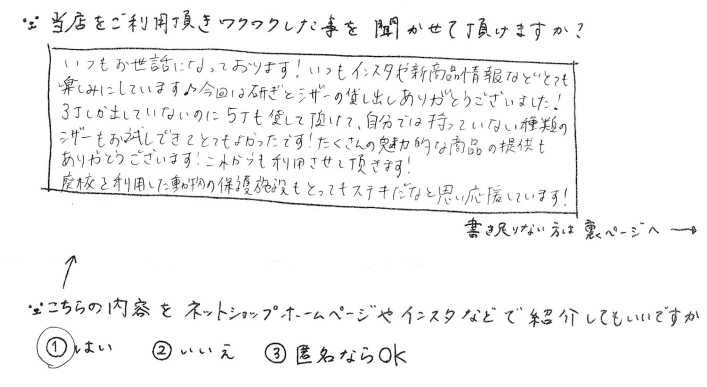 当店をご利用頂きワクワクした事を聞かせて頂けますか?
いつもお世話になっております!いつもインスタや新商品情報などとても
楽しみにしています♪今回は研ぎとシザーの貸し出しありがとうございました!
3丁しか出していないのに5丁も貸して頂けて、自分では持っていない種類の
シザーもお試しできてとてもよかったです!たくさんの魅力的な商品の提供も
ありがとうございます!これからも利用させて頂きます!
廃校を利用した動物の保護施設もとってもステキだなと思い応援しています!
書き足りない方は裏ページへ→
↑
こちらの内容をネットショップホームページやインスタなどで紹介してもいいですか
①はい ②いいえ ③匿名ならOK